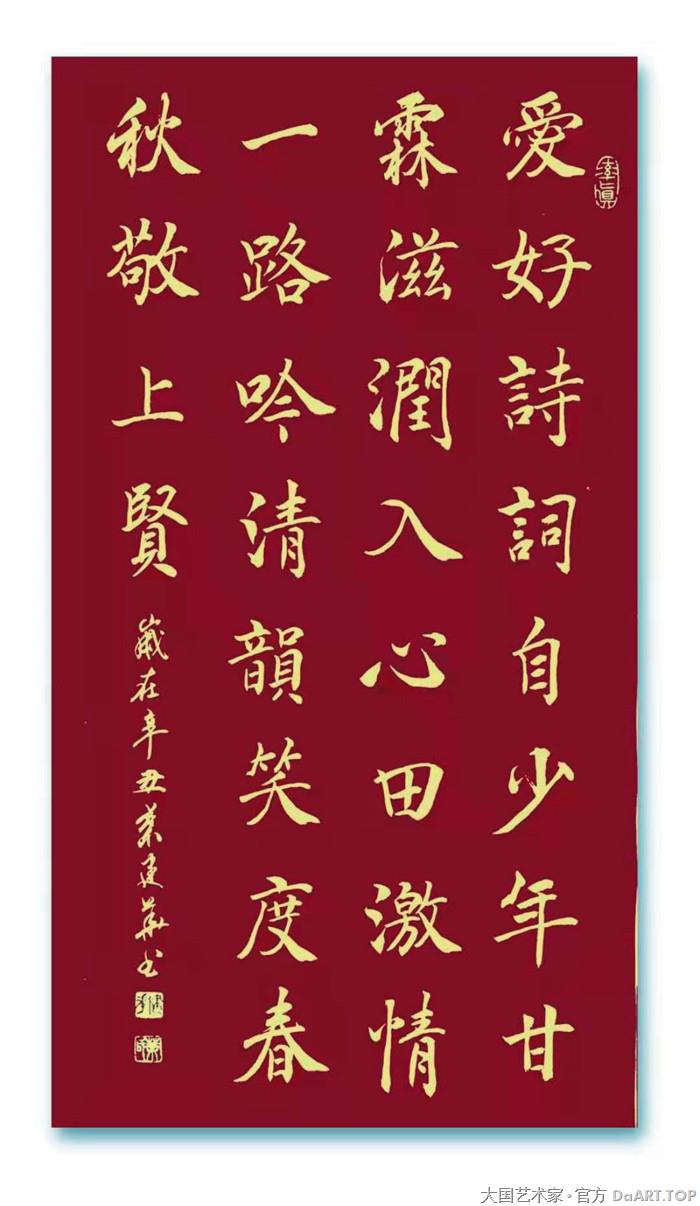 愛好詩詞自少年甘
霖滋潤入心田激情
一路吟清韻笑度春
秋敬上賢
歲在辛丑葉建華書
大国艺术家·官方 DaART.TOP